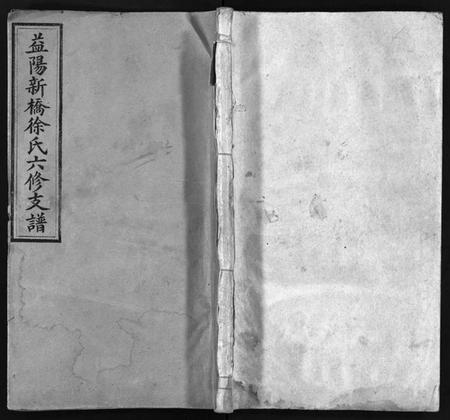 益陽新橋徐氏六修支譜